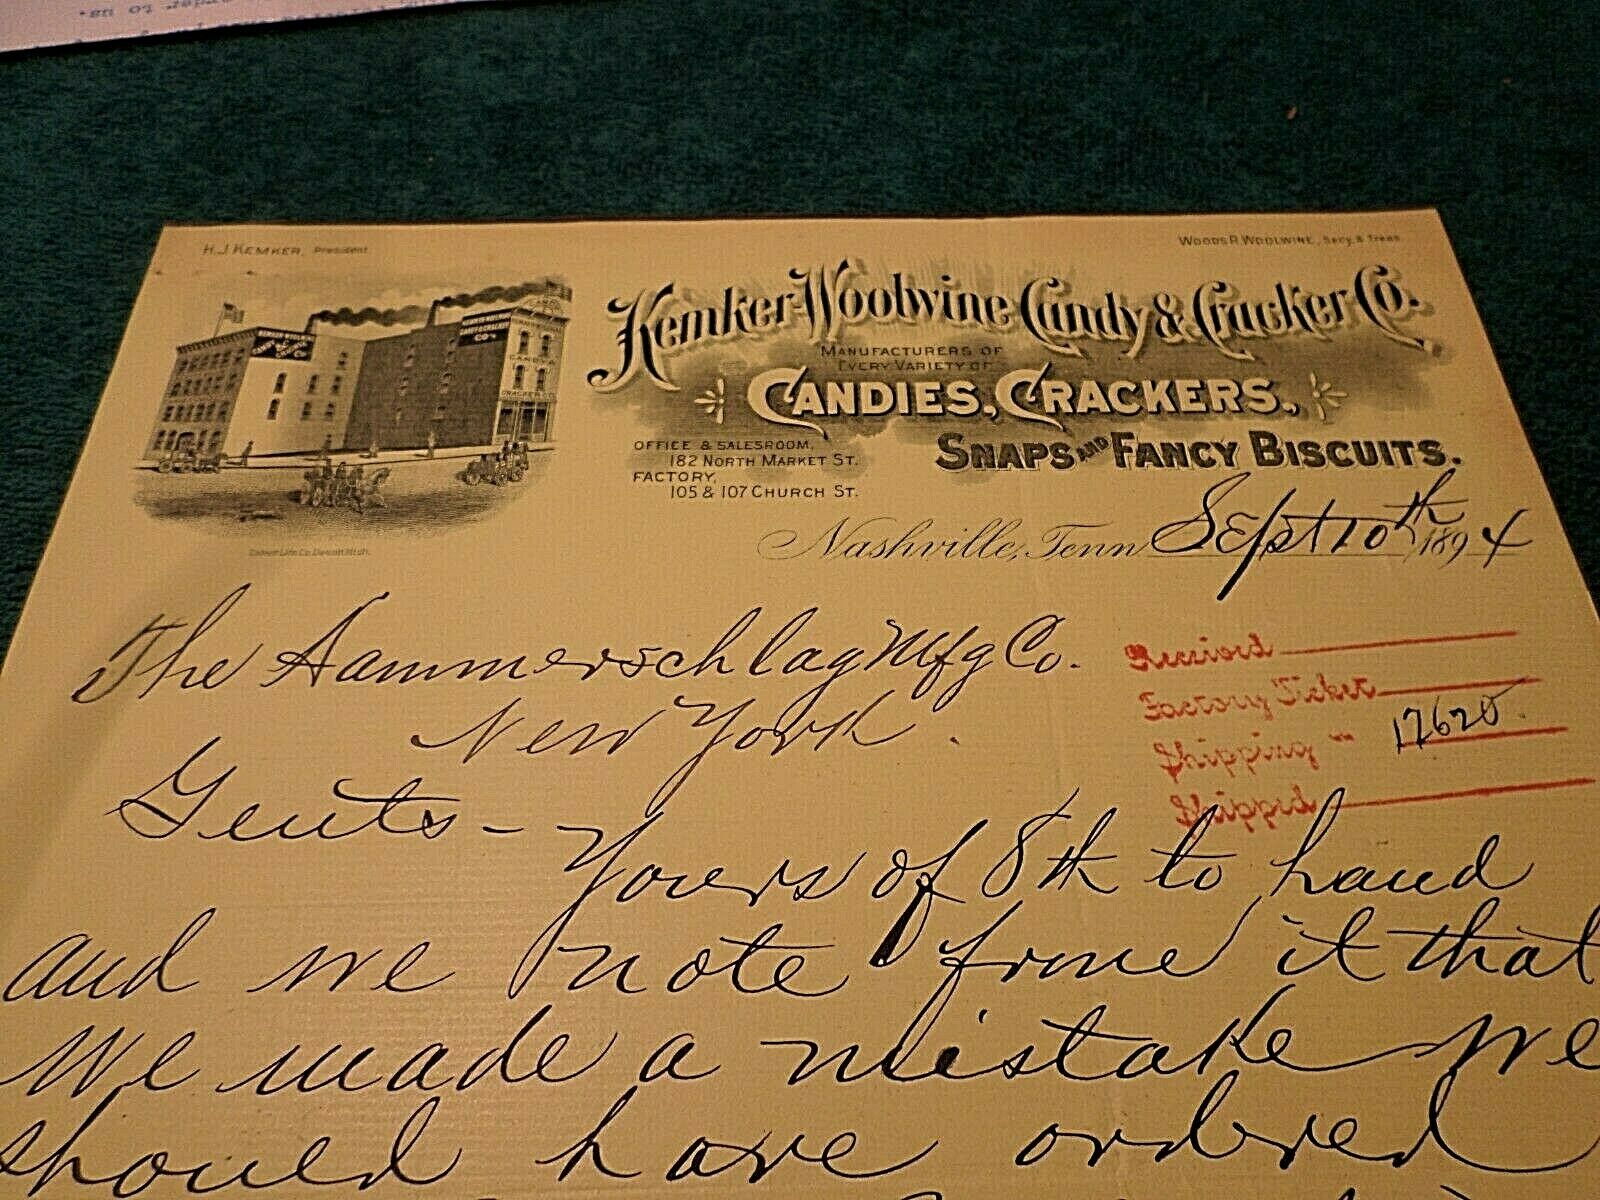 H. J. KEMKER, President
WOODS R. WOOLWINE, Secy. & Treas.
Kemker-Woolwine Candy & Cracker Co.
MANUFACTURERS OF
EVERY VARIETY OF
CANDIES, CRACKERS,
SNAPS AND FANCY BISCUITS.
OFFICE & SALESROOM,
182 NORTH MARKET ST.
FACTORY,
105 & 107 CHURCH ST.
Nashville, Tenn Sept 10th 1894
The Hammerschlag Mfg Co.
New York.
Received
Factory Ticket
Shipping " 12620
Shipped
Gents - Yours of 8th to hand
and we note from it that
we made a mistake we
should have ordered